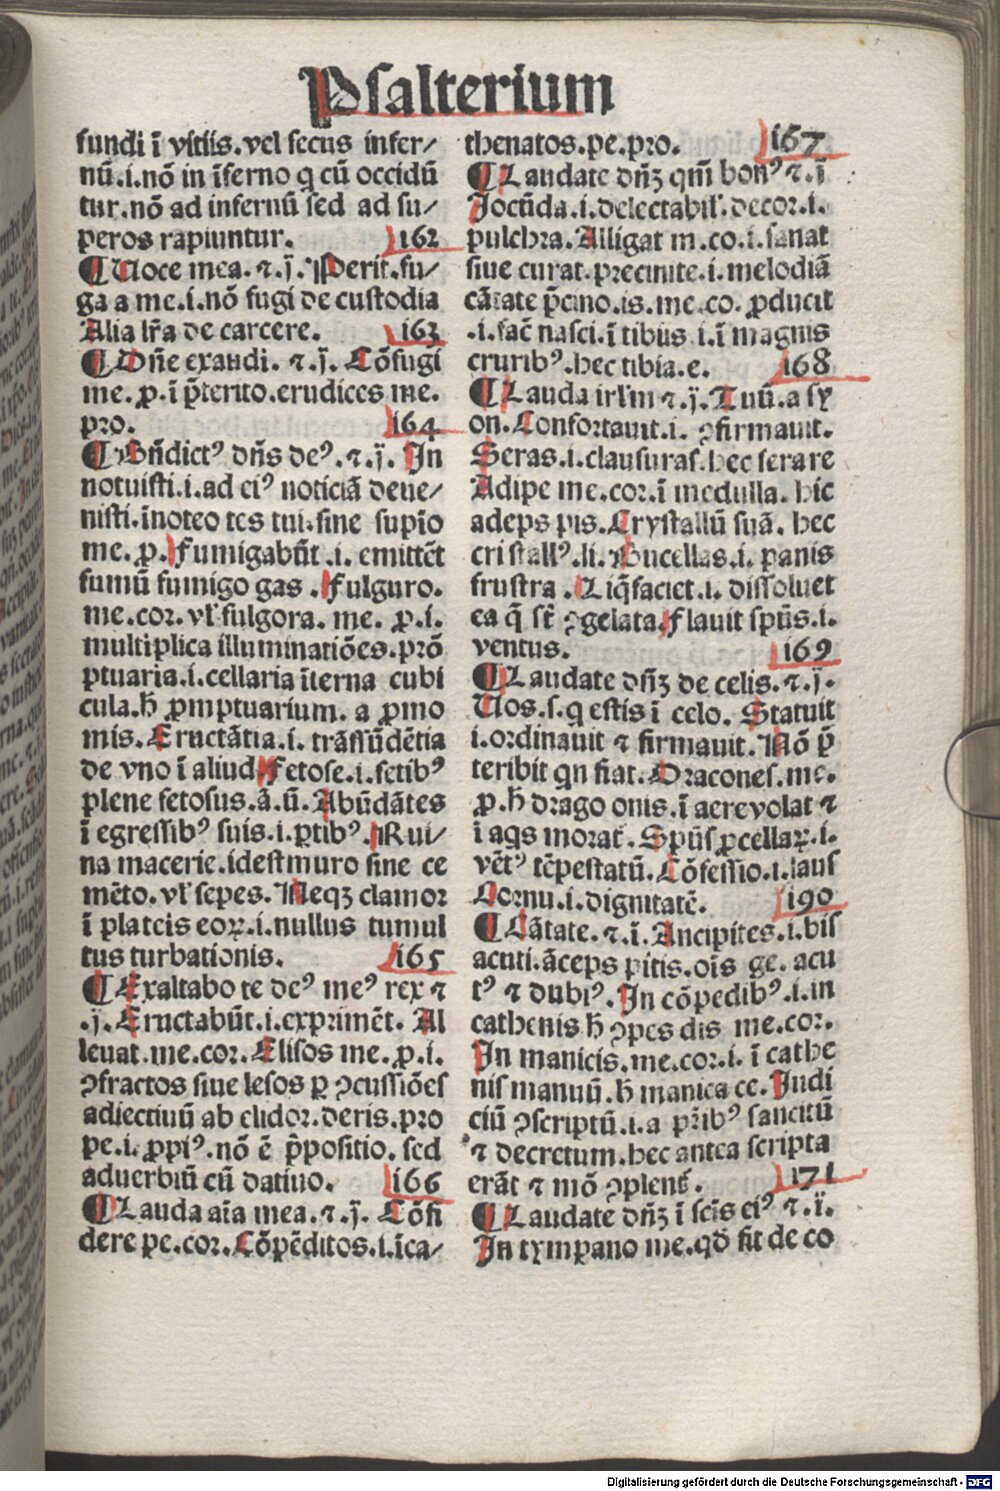 Psalterium
fundi ī vſtiis.vel ſecus infer/
nū.i.nō in īferno q cū occidū
tur.nō ad infernū ſed ad ſu/
peros rapiuntur. 162
¶ Uoce mea.⁊.j̄. Perit.fu/
ga a me.i.nō fugi de cuſtodia
Alia lr̄a de carcere. 163
¶ Dn̄e exaudi. ⁊.j̄. Cōfugi
me. ꝓ. ī p̄terito.erudices me.
pro. 164
¶ Bn̄dictꝰ dn̄s deꝰ.⁊.j̄. In
notuiſti.i.ad eiꝰ noticiā deue/
niſti.īnoteo tes tui.ſine ſupīo
me. ꝓ. Fumigabūt.i. emittēt
fumū fumigo gas . Fulguro.
me.cor. vl̓ fulgora. me. ꝓ. i.
multiplica illuminatiōes.prō
ptuaria.i.cellaria īterna cubi
cula.ħ ꝓmptuarium. a ꝓmo
mis. Eructātia.i. trāſſūdētia
de vno ī aliud. Fetoſe.i.fetibꝰ
plene fetoſus.a.ū. Abūdātes
ī egreſſibꝰ ſuis.i.ꝑtibꝰ. Rui/
na macerie.ideſt muro ſine ce
mēto. vl̓ ſepes. Neqꝫ clamor
ī plateis eoꝝ.i.nullus tumul
tus turbationis. 165
¶ Exaltabo te deꝰ meꝰ rex ⁊
.j̄. Eructabūt.i.exprimēt. Al
leuat.me.cor. Eliſos me. ꝓ. i.
ꝯfractos ſiue leſos ꝑ ꝯcuſſiōes
adiectiuū ab elidor.deris.pro
pe.i. ꝓpiꝰ.nō ē p̄poſitio. ſed
aduerbiū cū datiuo. 166
¶ Lauda aīa mea.⁊.j̄. Cōfi
dere pe.cor. Cōpēditos.i.īca/
thenatos.pe.pro. 167
¶ Laudate dn̄ꝫ qm̄ bonꝰ ⁊.ī
Jocūda.i.delectabil̓.decor.i.
pulchra. Alligat m.co.i.ſanat
ſiue curat.precinite.i.melodiā
cātate p̄cino.is.me.co. ꝓducit
.i.fac̄ naſci.ī tibus i.ī magnis
cruribꝰ.hec tibia.e. 168
¶ Lauda irl̓m ⁊.j̄. Tuū.a ſy
on. Confortauit.i. ꝯfirmauit.
Seras.i.clauſuras.hec ſerare
Adipe me.cor.ī medulla. hic
adeps pis. Cryſtallū ſuā. hec
criſtallꝰ.li. Bucellas.i. panis
fruſtra . Liq̄faciet.i. diſſoluet
ea q̄ ſt̄ ꝯgelata. Flauit ſpūs.i.
ventus. 169
¶ Laudate dn̄ꝫ de celis.⁊.j̄.
Uos.ſ.q eſtis ī celo. Statuit
i.ordinauit ⁊ firmauit. Nō p̄
teribit qn fiat. Dracones.me.
ꝓ.ħ drago onis.ī aere volat ⁊
ī aqs morat̄. Spūs ꝓcellaꝝ.i.
vētꝰ tēpeſtatū. Cōfeſſio.i.laus
Cornu.i.dignitatē. 190
¶ Cātate.⁊.ī. Ancipites.i.bis
acuti.āceps pitis.oīs ge. acu
tꝰ ⁊ dubiꝰ. In cōpedibꝰ.i.in
cathenis ħ ꝯpes dis me.cor.
In manicis.me.cor.i. ī cathe
nis manuū.ħ manica ce. Judi
ciū ꝯſcriptū.i.a pr̄ibꝰ ſancitū
⁊ decretum.hec antea ſcripta
erāt ⁊ mō ꝯplent̄. 171
¶ Laudate dn̄ꝫ ī ſcīs eiꝰ ⁊.ī.
In tympano me.qd̄ fit de co
Digitalisierung gefördert durch die Deutsche Forschungsgemeinschaft - DFG